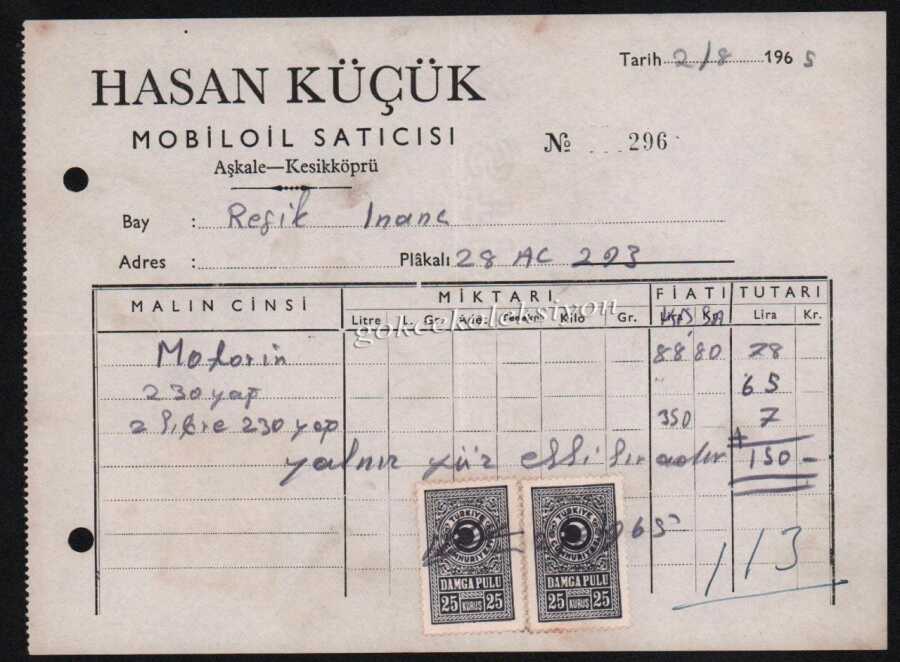 Tarih 2/8 1965
HASAN KÜÇÜK
MOBİLOİL SATICISI
Nº 296
Aşkale—Kesikköprü
Bay : Refik Inanc
Adres : Plâkalı 28 AC 293
MALIN CİNSİ MİKTARI FİATI TUTARI
Litre L. Gr. Kilo Gr. Lira Kr.
gokcekoleksiyon
Motorin 88 80 78
230 yap 65
2 Litre 230 yap 350 7
yalnız yüz elli liradır 150-
1965
113
TÜRKİYE CUMHURİYETİ TÜRKİYE CUMHURİYETİ
DAMGA PULU DAMGA PULU
25 KURUŞ 25 25 KURUŞ 25